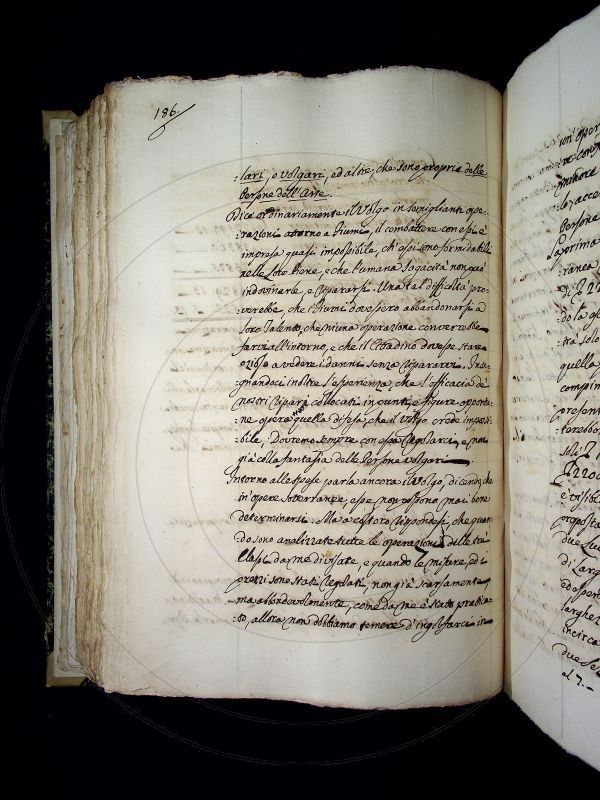 186.
:lari, o volgari, ed altre, che sono proprie delle
Persone dell'Arte.
Dice ordinariamente il Volgo in simiglianti ope-
:razioni attorno a Fiumi, il combattere con essi è
impresa quasi impossibile, ch'essi sono formidabili
nelle loro Piene, e che l'umana sagacità non può
indovinarle, e ripararsi. Una tal difficoltà pro-
:verebbe, che i Fiumi dovessero abbandonarsi a
loro Talento, che niuna operazione converrebbe
farvi all'intorno, e che il Cittadino dovesse stare
ozioso a vedere i danni senza ripararvi. Inse-
:gnandoci inoltre l'esperienza, che l'efficacia de'
nostri Ripari collocati in punti, e figure opportu-
:ne opera quella difesa, che il volgo crede impossi-
:bile; Dovremo sempre con essa regolarci, e non
già colla fantasia delle Persone volgari
Intorno alle spese parla ancora il Volgo, dicendo, che
in opere soterranee, esse non possono mai bene
determinarsi. Ma a costoro rispondesi, che quan-
do sono analizzate tutte le operazioni delle tre
Classi da me divisate, e quando le misure, ed i
prezzi sono stati regolati, non già scarsamente
ma abbondevolmente, come da me è stato pratica-
to, allora non dobbiamo temere d'ingolfarci in
un'oper
Persone
di
quella
present
due
di Larg
larghez
incirca
al 7.